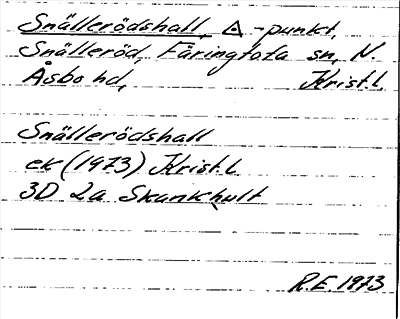 Snällerödshall, △-punkt,
Snälleröd, Färingtofta sn, N.
Åsbo hd, Krist.l.
Snällerödshall
ek (1973) Krist.l.
3D 2a Skånkhult
R.E. 1973